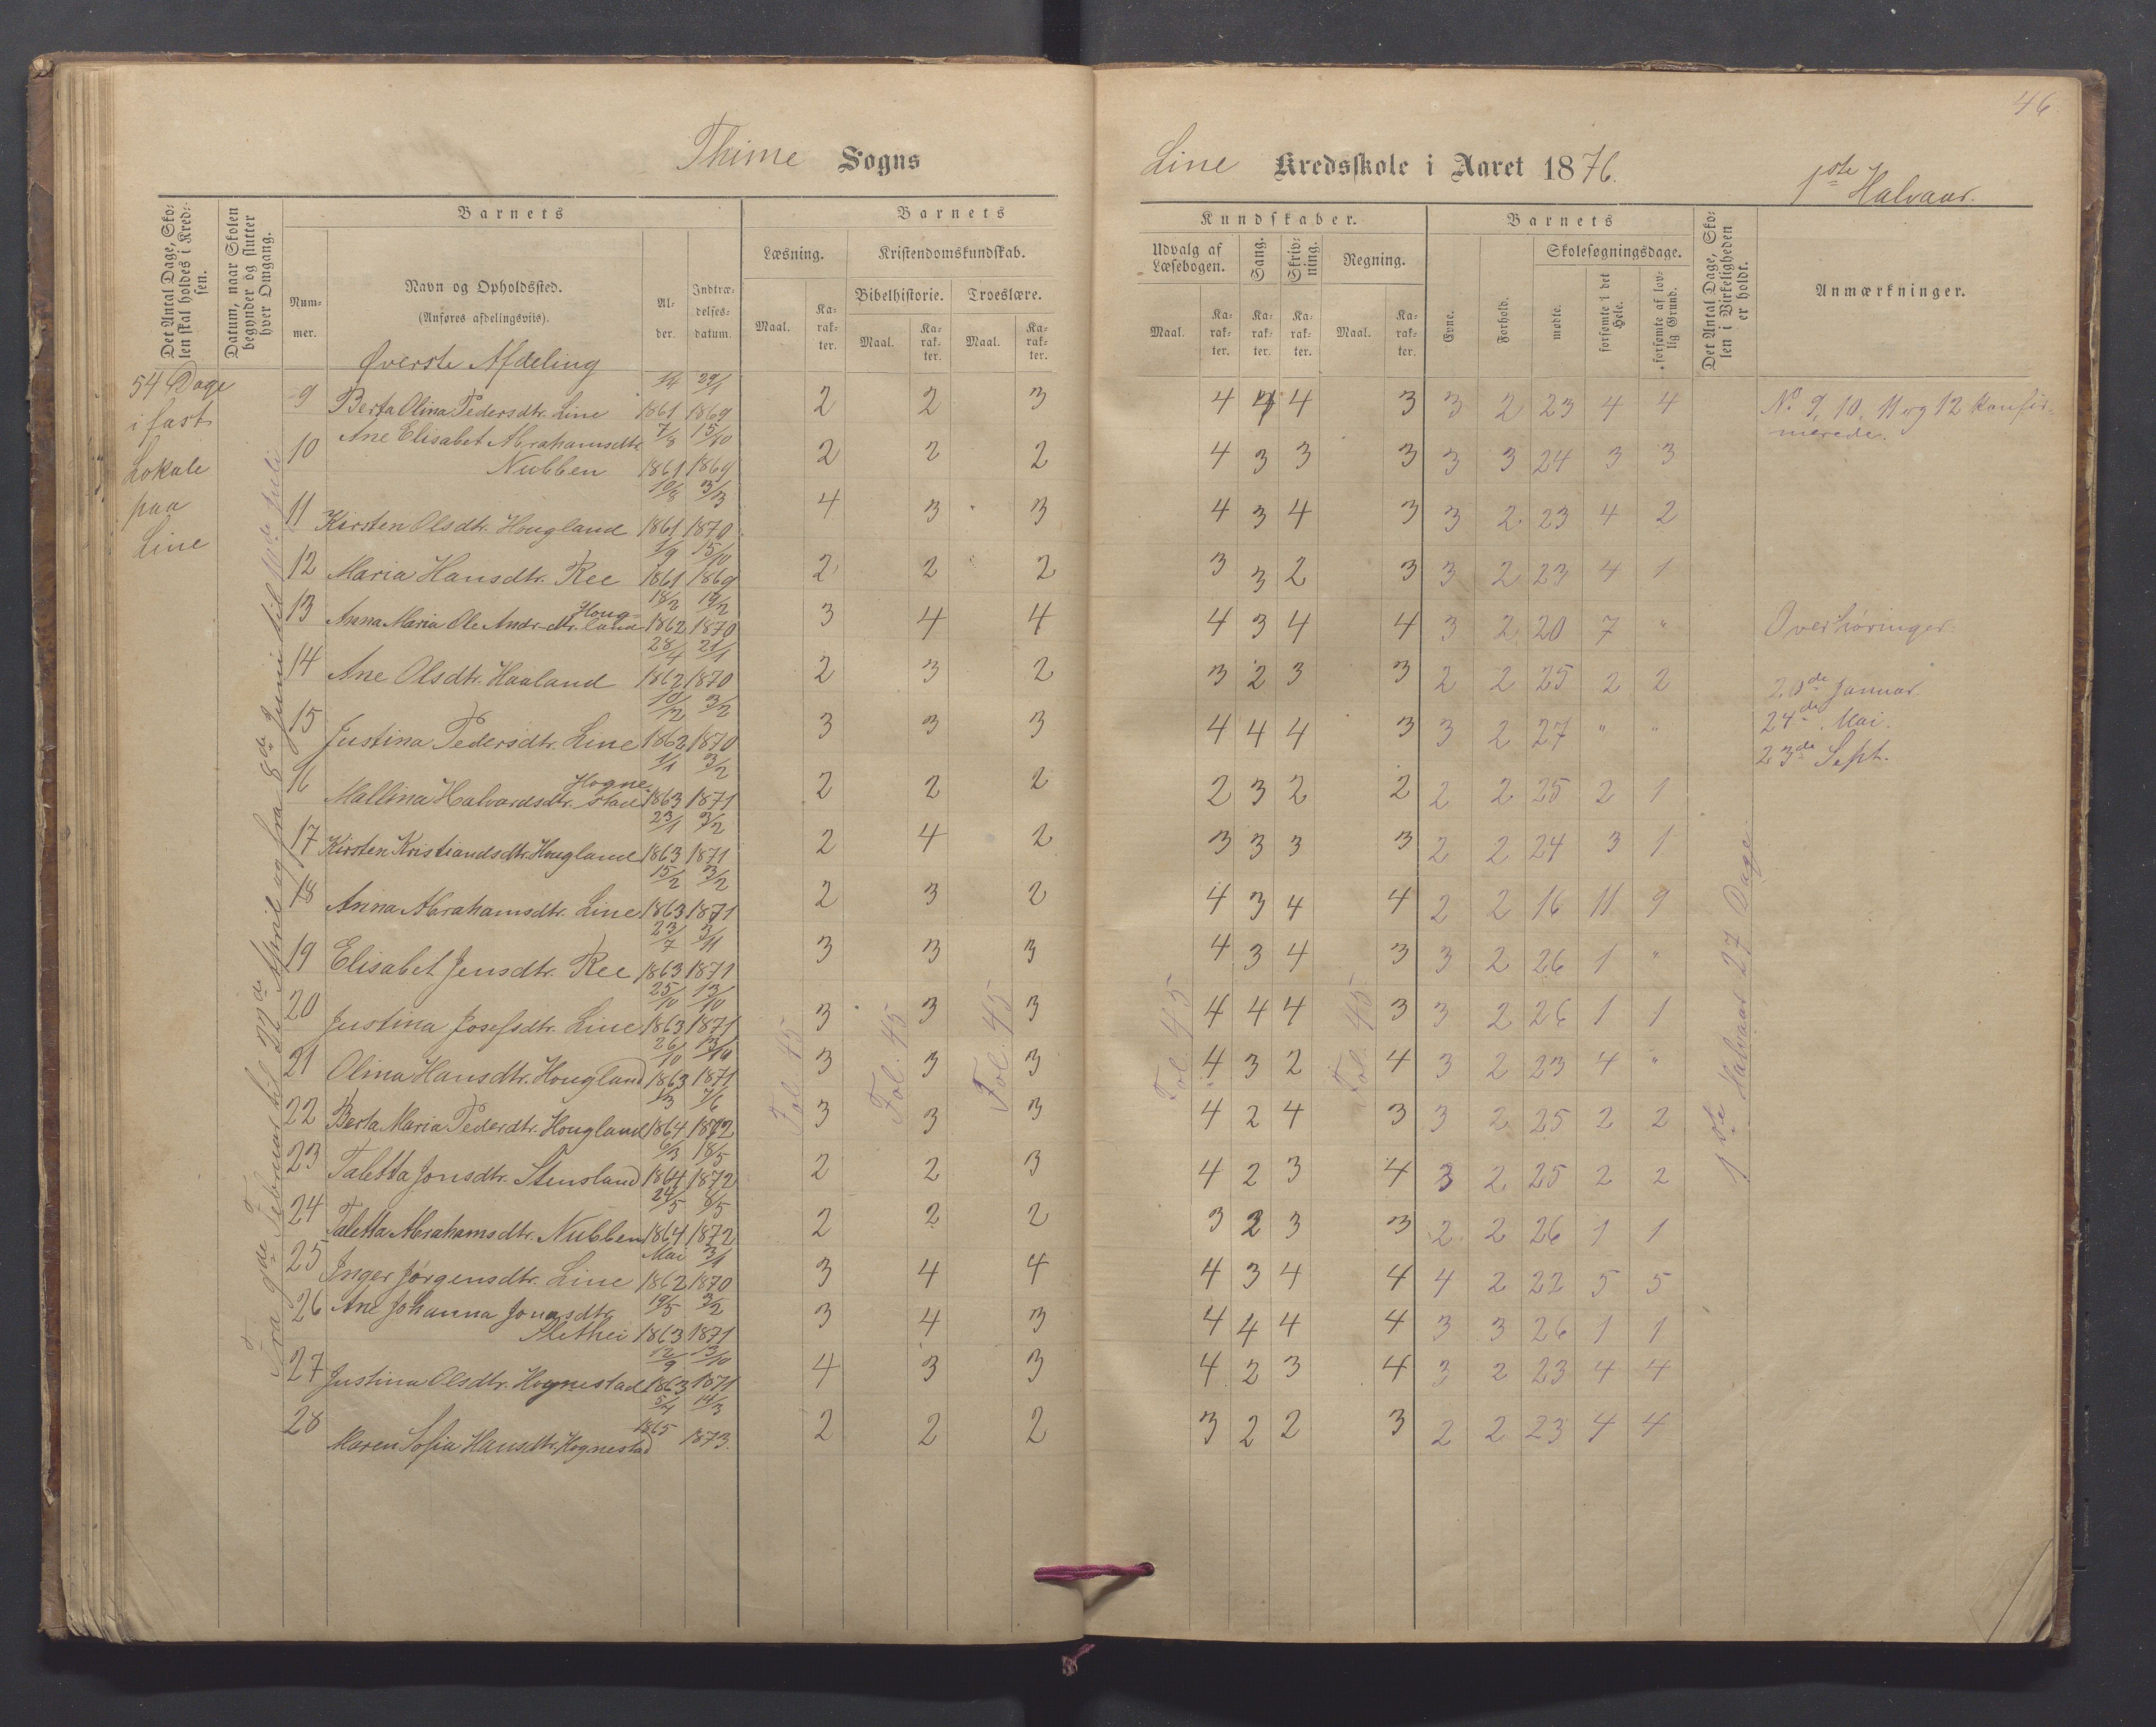 46
Thime Sogns
Line Kredsskole i Aaret 1876.
1ste Halvaar.
Det Antal Dage, Skolen skal holdes i Kredsen.
Datum, naar Skolen begynder og slutter hver Omgang.
Barnets
Nummer.
Navn og Opholdssted.
(Anføres afdelingsviis).
Alder.
Indtrædelsesdatum.
Barnets
Læsning.
Kristendomskundskab.
Bibelhistorie.
Troeslære.
Maal.
Karakter.
Maal.
Karakter.
Maal.
Karakter.
Kundskaber.
Udvalg af Læsebogen.
Sang.
Skrivning.
Regning.
Maal.
Karakter.
Karakter.
Karakter.
Maal.
Karakter.
Barnets
Evne.
Forhold.
Skolesøgningsdage.
mødte.
forsømte i det Hele.
forsømte af lovlig Grund.
Det Antal Dage, Skolen i Virkeligheden er holdt.
Anmærkninger.
Øverste Afdeling
54 Dage
i fast
Lokale
paa
Line
Fra 9de Februar til 22de April og fra 8de Juni til 11de Juli
9 Berta Olina Pedersdtr. Line 1861 29/1 1869 2 2 3 4 4 4 3 3 2 23 4 4
10 Ane Elisabet Abrahamsdtr. 7/8 15/10
Nubben 1861 1869 2 2 2 4 3 3 3 3 3 24 3 3
11 Kirsten Olsdtr. Hougland 10/8 1861 3/3 1870 4 3 3 4 3 4 3 3 2 23 4 2
12 Maria Hansdtr. Ree 1/9 1861 15/10 1869 2 2 2 3 3 2 3 3 2 23 4 1
13 Anna Maria Ole Andr. dtr. Hougland 18/2 1862 19/2 1870 3 4 4 4 3 4 4 3 2 20 7 "
14 Ane Olsdtr. Haaland 28/4 1862 21/1 1870 2 3 2 3 2 3 3 2 2 25 2 2
15 Justina Pedersdtr. Line 10/12 1862 3/2 1870 3 3 3 4 4 4 3 3 2 27 " "
16 Mallina Halvardsdtr. Hognestad 1/1 1863 3/2 1871 2 2 2 2 3 2 2 2 2 25 2 1
17 Kirsten Kristiandsdtr. Hougland 23/1 1863 3/2 1871 2 4 2 3 3 3 3 2 2 24 3 1
18 Anna Abrahamsdtr. Line 15/2 1863 3/2 1871 2 3 2 4 3 4 4 2 2 16 11 9
19 Elisabet Jensdtr. Ree 23/7 1863 3/11 1871 3 3 3 4 3 4 3 3 2 26 1 "
20 Justina Josefsdtr. Line 25/10 1863 13/10 1871 3 3 3 4 4 4 3 3 2 26 1 1
21 Olina Hansdtr. Hougland 26/10 1863 13/10 1871 3 3 3 4 3 2 4 3 2 23 4 "
22 Berta Maria Pederdtr. Hougland 1864 7/6 1872 3 3 3 4 2 4 3 3 2 25 2 2
23 Taletta Jonsdtr. Stensland 6/3 1864 18/5 1872 2 2 3 4 2 3 4 3 2 25 2 2
24 Taletta Abrahamsdtr. Nubben 24/5 1864 1872 2 2 2 3 2 3 3 2 2 26 1 1
25 Inger Jørgensdtr. Line Mai 1862 3/1 1870 3 4 4 4 3 4 4 4 2 22 5 5
26 Ane Johanna Jonasdtr. 19/5 3/2
Slethei 1863 1871 3 4 3 4 4 4 4 3 3 26 1 1
27 Justina Olsdtr. Hognestad 12/9 1863 13/10 1871 4 3 3 4 2 3 4 3 2 23 4 4
28 Maren Sofia Hansdtr. Hognestad 5/4 1865 14/3 1873. 2 2 2 3 2 2 3 2 2 23 4 4
Fol. 45
Fol. 45
Fol. 45
Fol. 45
Fol. 45
1ste Halvaar 27 Dage.
No. 9, 10, 11 og 12 konfir-
merede.
Overhøringer.
20de Januar.
24de Mai.
23de Sept.